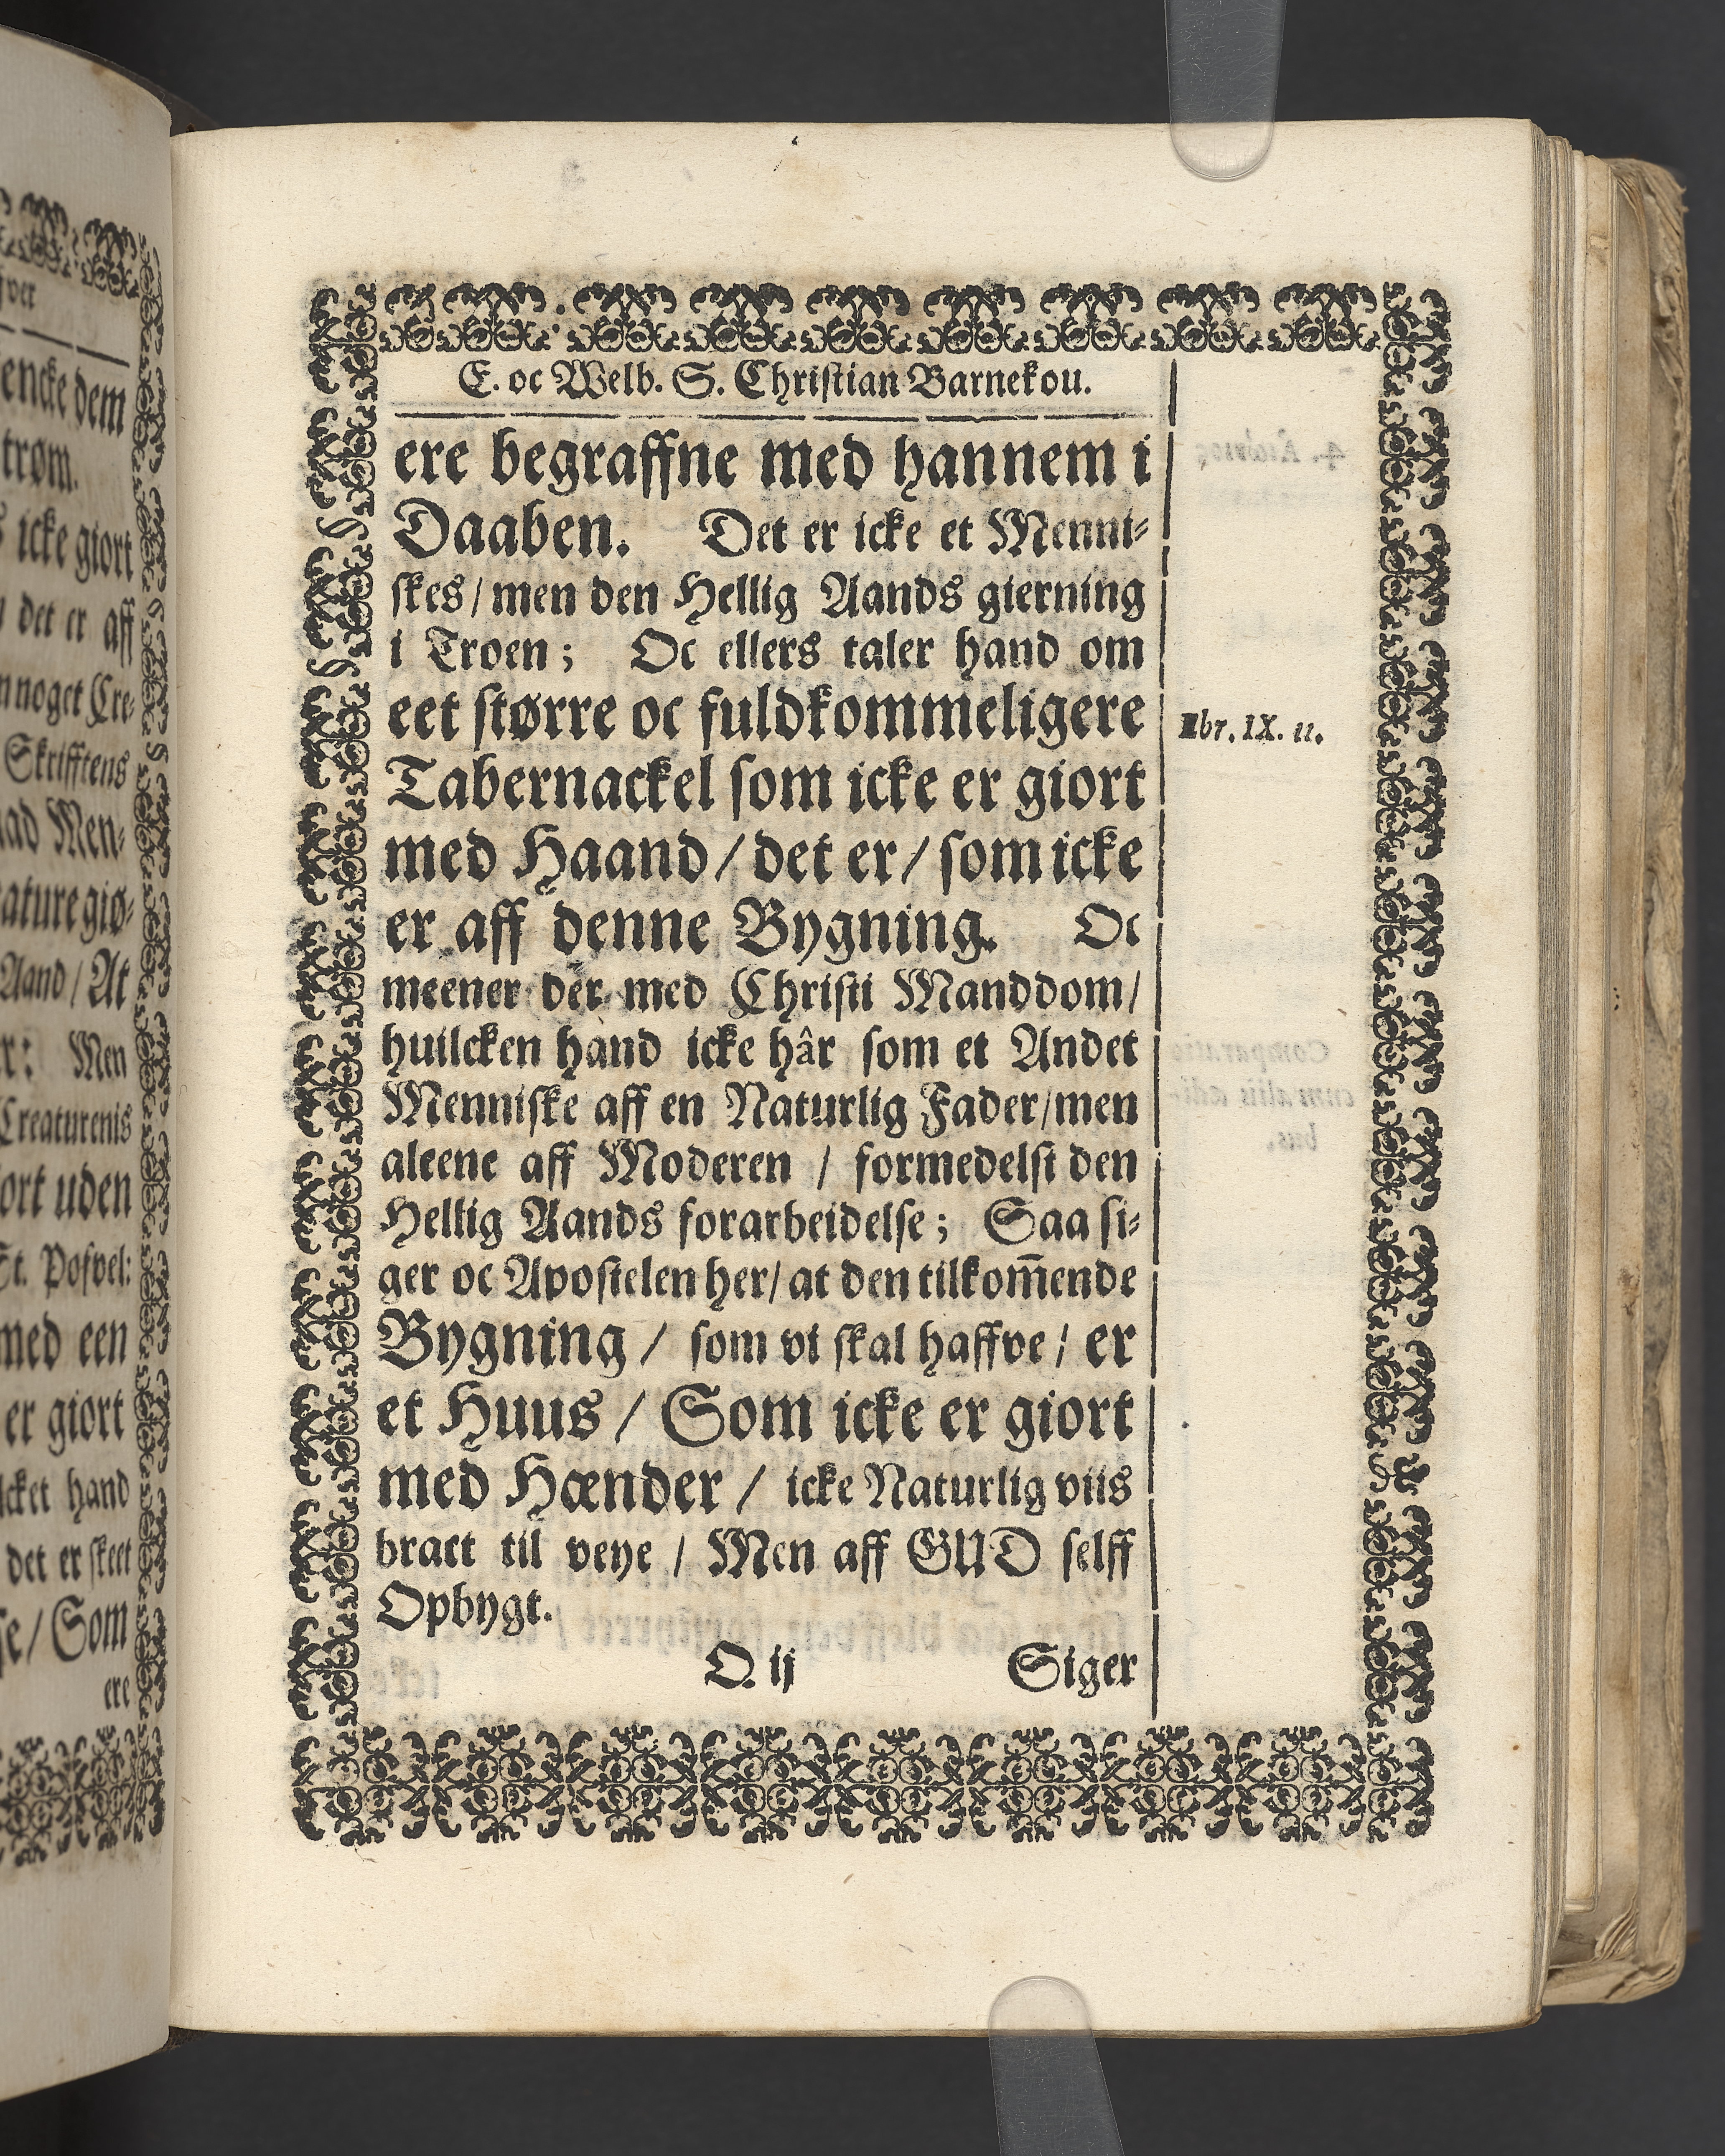 E. oc Welb. S. Christian Barnekou.
ere begraffne med hannem i
Daaben. Det er icke et Menni-
skes/ men den Hellig Aands gierning
i Troen; Oc ellers taler hand om
eet større oc fuldkommeligere
Tabernackel som icke er giort
med Haand/ det er/ som icke
er aff denne Bygning. Oc
meener der med Christi Manddom/
huilcken hand icke hâr som et Andet
Menniske aff en Naturlig Fader/ men
aleene aff Moderen / formedelst den
Hellig Aands forarbeidelse; Saa si-
ger oc Apostelen her/ at den tilkom̃ende
Bygning / som vi skal haffve / er
et Huus / Som icke er giort
med Hænder / icke Naturlig viis
bract til veye / Men aff GUD selff
Opbygt.
O. ij Siger
Ebr. IX. 11.
encke dem
trøm.
icke giort
det er aff
noget Cre-
Skrifftens
Men-
ature giø-
Aand/ At
Men
Creaturenis
uden
St. Pofvel:
med een
er giort
hand
det er skeet
Som
ere